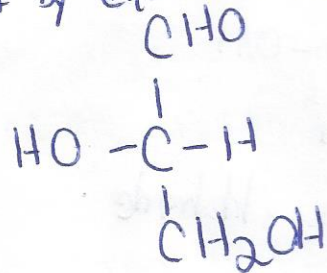 CHO
HO - C - H
CH₂OH